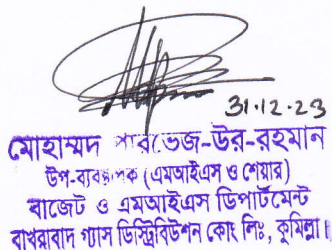 31-12-23
মোহাম্মদ পারভেজ-উর-রহমান
উপ-ব্যবস্থাপক (এমআইএস ও শেয়ার)
বাজেট ও এমআইএস ডিপার্টমেন্ট
বাখরাবাদ গ্যাস ডিস্ট্রিবিউশন কোং লিঃ, কুমিল্লা।